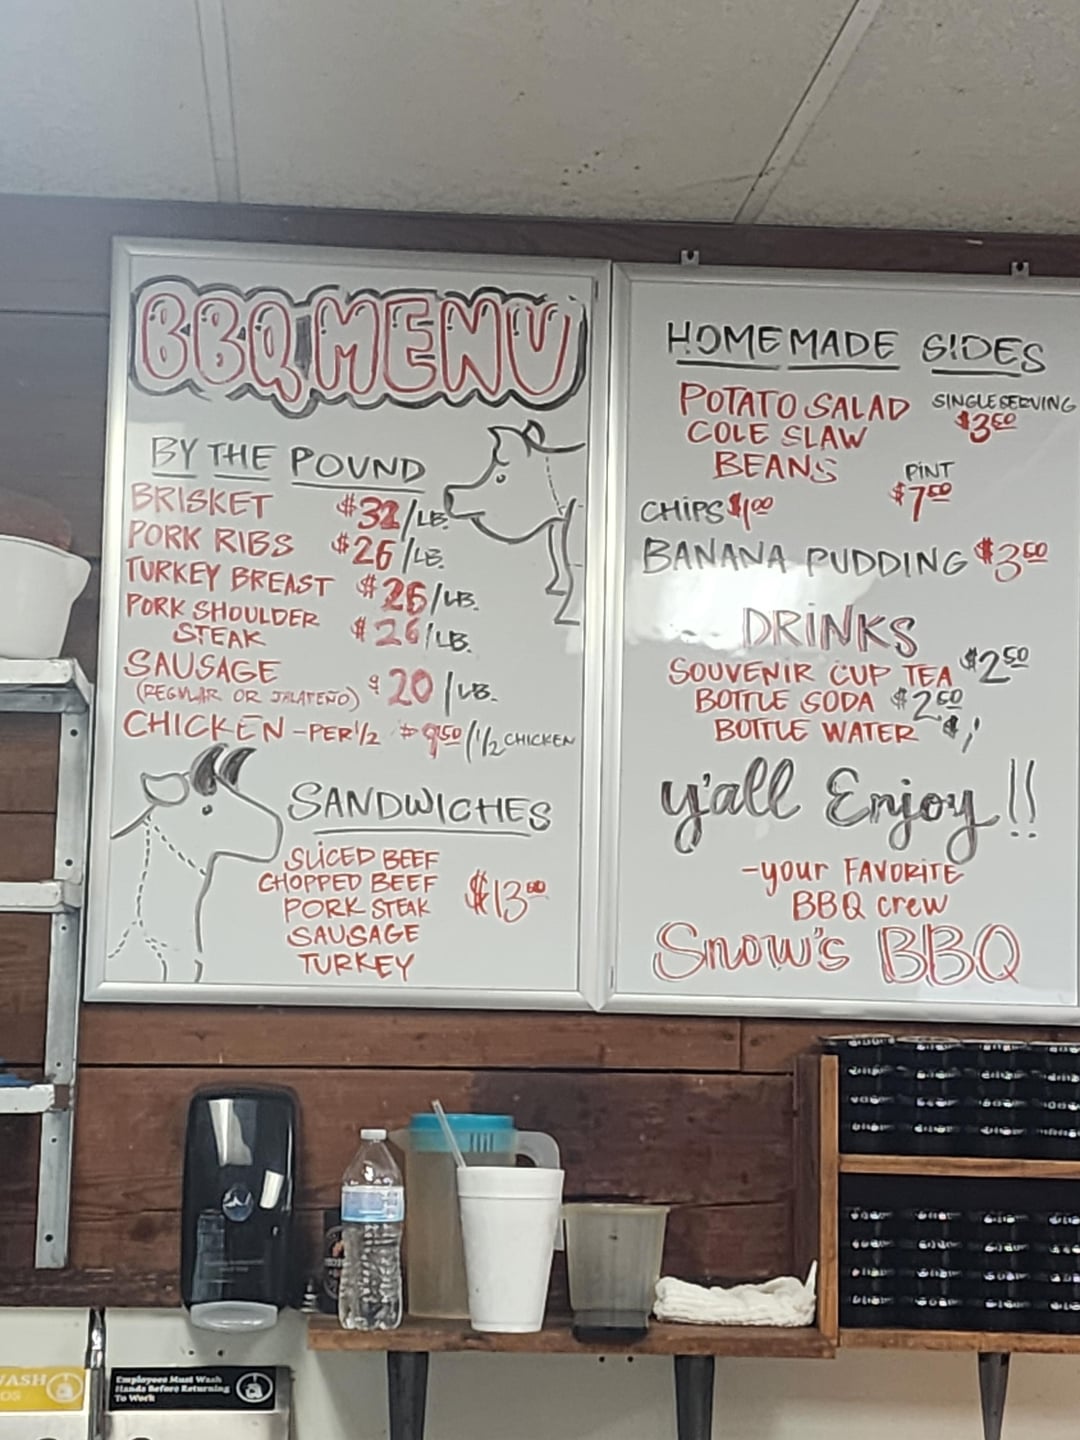 BBQ MENU
BY THE POUND
BRISKET $32/LB.
PORK RIBS $26/LB.
TURKEY BREAST $26/LB.
PORK SHOULDER
STEAK $26/LB.
SAUSAGE
(REGULAR OR JALAPEÑO) $20/LB.
CHICKEN - PER 1/2 $9.50/1/2 CHICKEN
SANDWICHES
SLICED BEEF
CHOPPED BEEF
PORK STEAK $13.00
SAUSAGE
TURKEY
HOMEMADE SIDES
POTATO SALAD SINGLE SERVING
COLE SLAW $3.50
BEANS PINT
$7.50
CHIPS $1.00
BANANA PUDDING $3.50
DRINKS
SOUVENIR CUP TEA $2.50
BOTTLE SODA $2.50
BOTTLE WATER $1
y'all Enjoy!!
-your FAVORITE
BBQ crew
Snow's BBQ
WASH
Employees Must Wash
Hands Before Returning
To Work